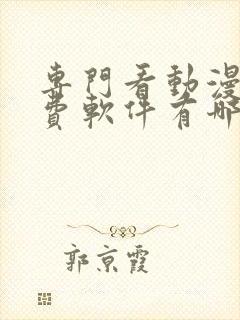 專門看動漫
費軟件有哪
郭京霞